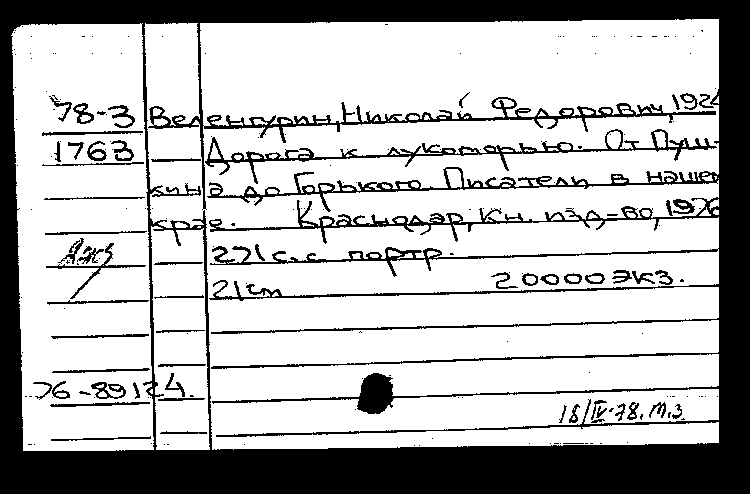 78-3 Веленгурин, Николай Федорович, 1924
1763 Дорога к лукоморью. От Пуш-
кина до Горького. Писатели в нашем
крае. Краснодар, кн. изд-во, 1976
271 с. с портр.
21 cm 20000 экз.
76-89124.
18/IV-78. т.з